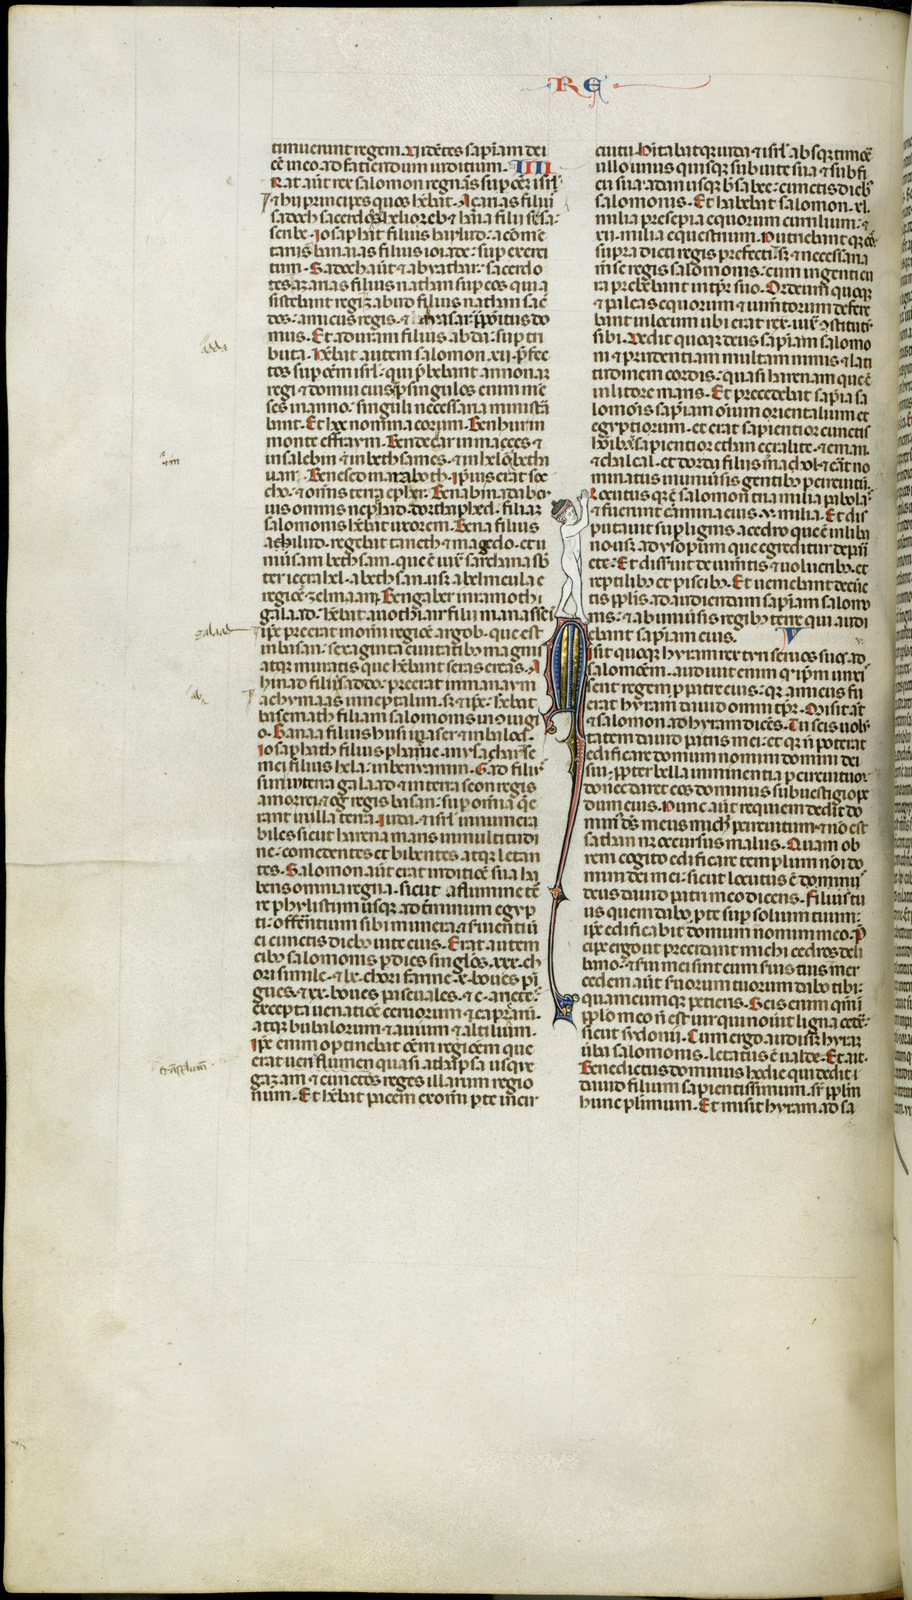 RE
timuerunt regem. Videntes sapiam dei
eē in eo ad faciendum iudicium. IIII
Rat aūt rex salomon regnās sup oēm isrl
& hii principes quos hēbat. Azarias filius
sadoch sacerdos helioreb & haia filii sesa
scribe. Iosaphat filius haylud a cōme
tariis banaias filius ioiade sup exerci
tum. Sadoch aūt & abyathar sacerdo
tes azarias filius nathan sup eos qui a
sistebant regi zabud filius nathan sac̄
dos amicus regis. & ahiasar p̄positus do
mus. Et aduram filius abda sup tri
buta. Hēbat autem salomon .xii. p̄fec
tos sup oēm isrl qui p̄bebant annonam
regi & domui eius p singulos enim mē
ses in anno singuli necessaria ministrā
bant. Et hec nomina eorum. Benhur in
monte effraym. Bendecar in macces &
in salebin & in bethsames & in helon beth
nan. Benesed in araboth. ipsius erat soc
cho & omis terra epher. Benabinadab cui
ius omnis nephad. dor thaphed filiam
salomonis hēbat uxorem. Bena filius
achilud regebat taneth & magedo. et u
niūsam bethsan. que ē iux̄ sarthana sb̄
ter iezrahel. a bethsan usq̄ abelmeula e
regiōe zelmaan. Bengaber in ramoth
galaad. hēbat auothiair filii manassei
ipē preerat in omī regiōe argob. que est
in basan. sexaginta ciuitatibȝ magnis
atq̄ muratis que hēbant seras ereas. A
hinadab filius addo preerat in manaym
achymaas in neptalim. sȝ & ipē hēbat
basemath filiam salomonis in ɔiugi
o. Banaa filius husi in aser & in baloth.
Iosaphath filius pharue in ysachar. Se
mei filius hela in beniamin. Gaber filiꝰ
suri in terra galaad & in terra seon regis
amorrei. & og regis basan. sup omīa que
rant in illa terra. Iuda & isrl innumera
biles sicut harena maris in multitudi
ne comedentes et bibentes atq̄ letan
tes. Salomon aūt erat in ditiōe sua ha
bens omnia regna. sicut a flumine tr̄
re phylistiim usq̄ ad t̄minum egyp
ti. offerentium sibi munera & s̄uientiū
ei cunctis diebȝ uite eius. Erat autem
cibȝ salomonis p dies singulos .xxx. ch
ori simile. & lx. chori farine. x. boues pī
gues. & xx. boues pascuales. & c. arietes
excepta uenatiōe ceruorum & capraruȝ
atq̄ bubalorum & auium & altilium.
ipē enim optinebat oēm regiōem que
erat uen flumen quasi a thapsa usq̄
gazam. & cunctos reges illarum regio
num. Et hēbat pacem ex omī pte in cir
cuitu. Hītabatq̄ iuda & isrl absq̄ timoē
ullo unus quisq̄ sub uite sua & sub fi
cu sua a dan usq̄ bersabee cunctis diebȝ
salomonis. Et habebat salomon .xl.
milia presepia equorum currilium. &
xii. milia equestrium. Nutriebantq̄ eos
supra dicti regis prefecti. sȝ & necessaria
mēse regis salomonis cum ingenti cu
ra prebebant in tpr̄ suo. Ordeum quoq̄
& paleas equorum & iumentorum defere
bant in locum ubi erat rex. iuxta ɔstituti
sibi. Dedit quoq̄ deus sapiam salomo
ni & prudentiam multam nimis & lati
tudinem cordis quasi harenam que ē
in litore maris. Et precedebat sapia sa
lomōis sapiam oium orientalium et
egyptiorum. et erat sapientior cunctis
hōibȝ. sapientior ethan ezraite. & eman.
& chalcal. et dorda filiis machol. & erāt no
minatus in uniūsis gentibȝ p circuitū.
Locutus q̄ ē salomon tria milia pabolaȝ
& fuerunt carmina eius .v. milia. Et dis
putauit sup lignis a cedro que ē in liba
no. usq̄ ad ysopum que egreditur de pari
ete. Et disseruit de iumentis & uolucribȝ et
reptilibȝ et piscibȝ. Et ueniebant de cunc
tis pplis ad audiendam sapiam salomo
nis. & ab uniūsis regibȝ terre qui audi
ebant sapiam eius. V
isit quoq̄ hyram rex tyri seruos suos ad
salomōem. audiuit enim q̄ ipm unxi
sent regem p patre eius. q̄ amicus fu
erat hyram dauid omni tpr̄. Misit aūt
& salomon ad hyram dicēs. Tu scis uolū
tatem dauid patris mei et q̄ n̄ poterat
edificare domum nomini domini dei
sui ppter bella imminentia p circuituȝ
donec daret eos dominus sub uestigio pe
dum eius. Nunc aūt requiem dedit do
minꝰ ds̄ meus michi p circuitum. & nō est
sathan nec occursus malus. Quam ob
rem cogito edificare templum nōi do
mini dei mei. sicut locutus ē dominꝰ
deus dauid patri meo dicens. Filius tu
us quem dabo pte sup solium tuum
ipē edificabit domum nomini meo. P̄
cipe ergo ut precidant michi cedros de li
bano. & s̄ui mei sint cum s̄uis tuis mer
cedem aūt s̄uorum tuorum dabo tibi
quamcumq̄ petieris. Scis enim qm̄ in
pplo meo n̄ est uir qui nouit ligna cedere
sicut sydonii. Cum ergo audisset hyram
ūba salomonis. letatus ē ualde. Et ait.
Benedictus dominus hodie qui dedit
dauid filium sapientissimum. sup pplm
hunc plimum. Et misit hyram ad sa
adda
galaad
ab